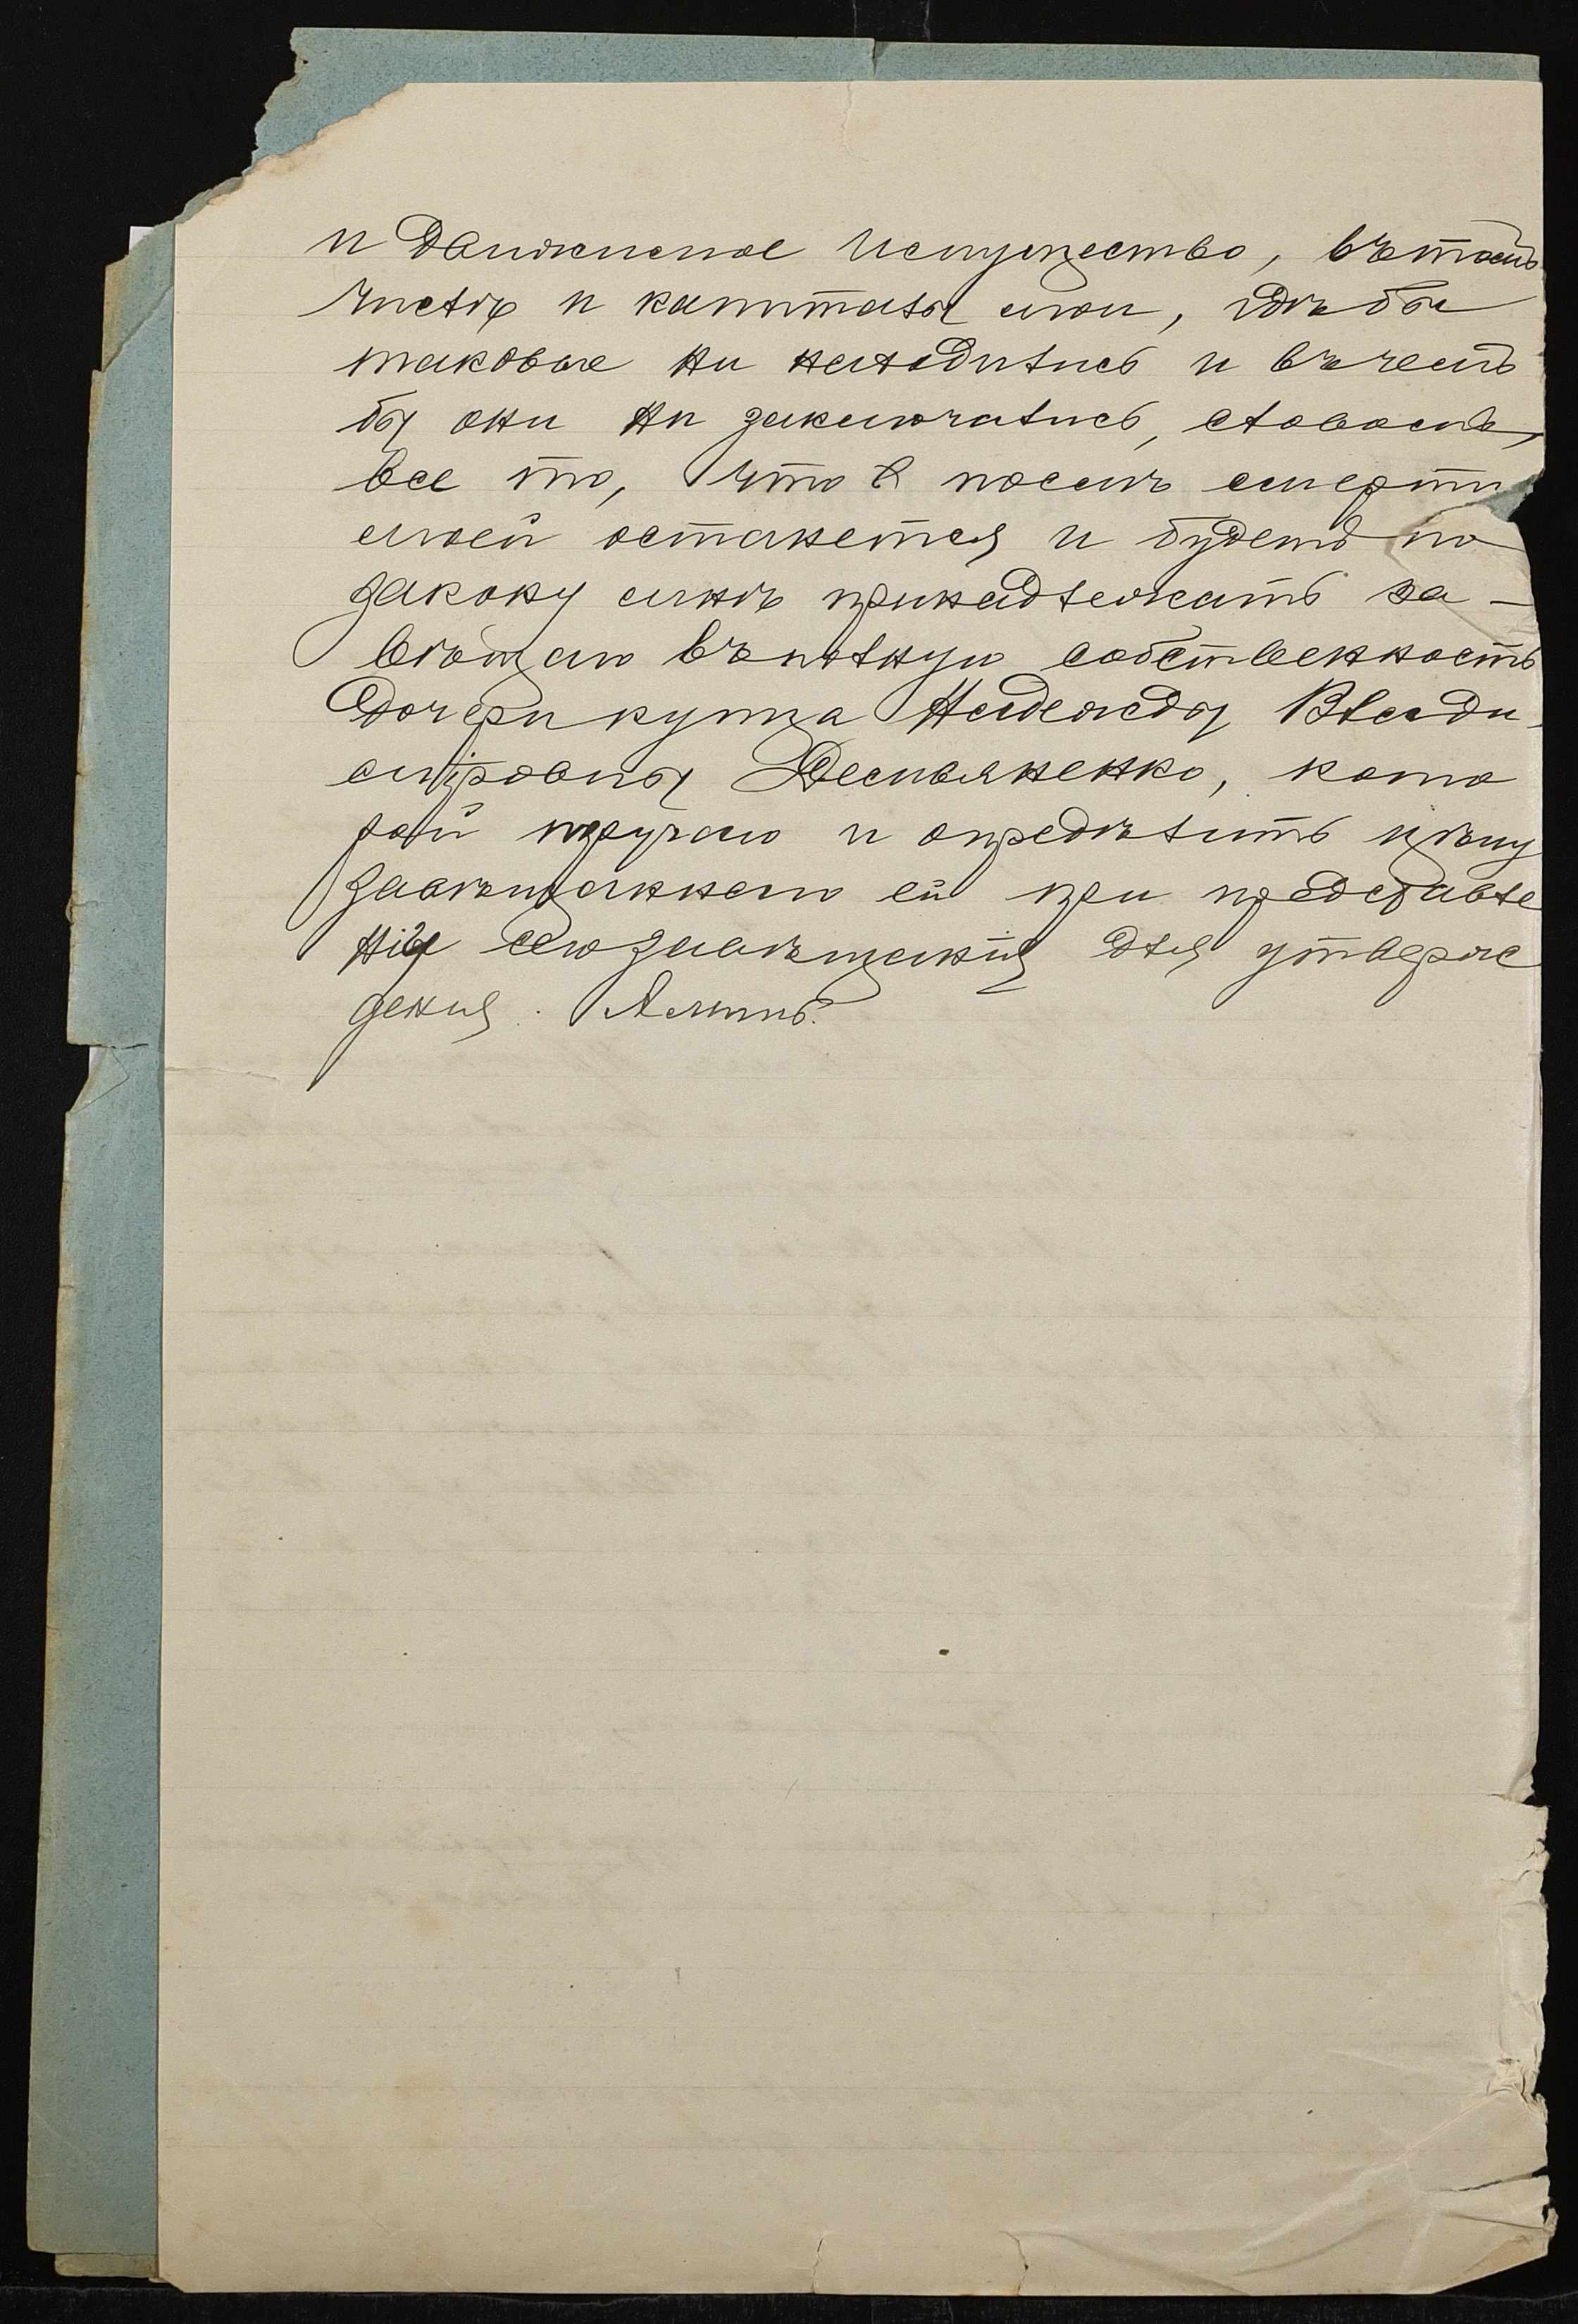 и движимое имущество, въ томъ
числѣ и капиталы мои, гдѣ бы
таковые ни находились и въ чемъ
бы они ни заключались, словомъ,
все то, что послѣ смерти
моей останется и будетъ по
закону мнѣ принадлежать за-
вѣщаю въ полную собственность
дочери купца Надежды Влади
міровны Демьяненко, кото
рой поручаю и опредѣлить цѣну
завѣщаннаго ей при представле
ніи сего завѣщанія для утверж
денія. Аминь.